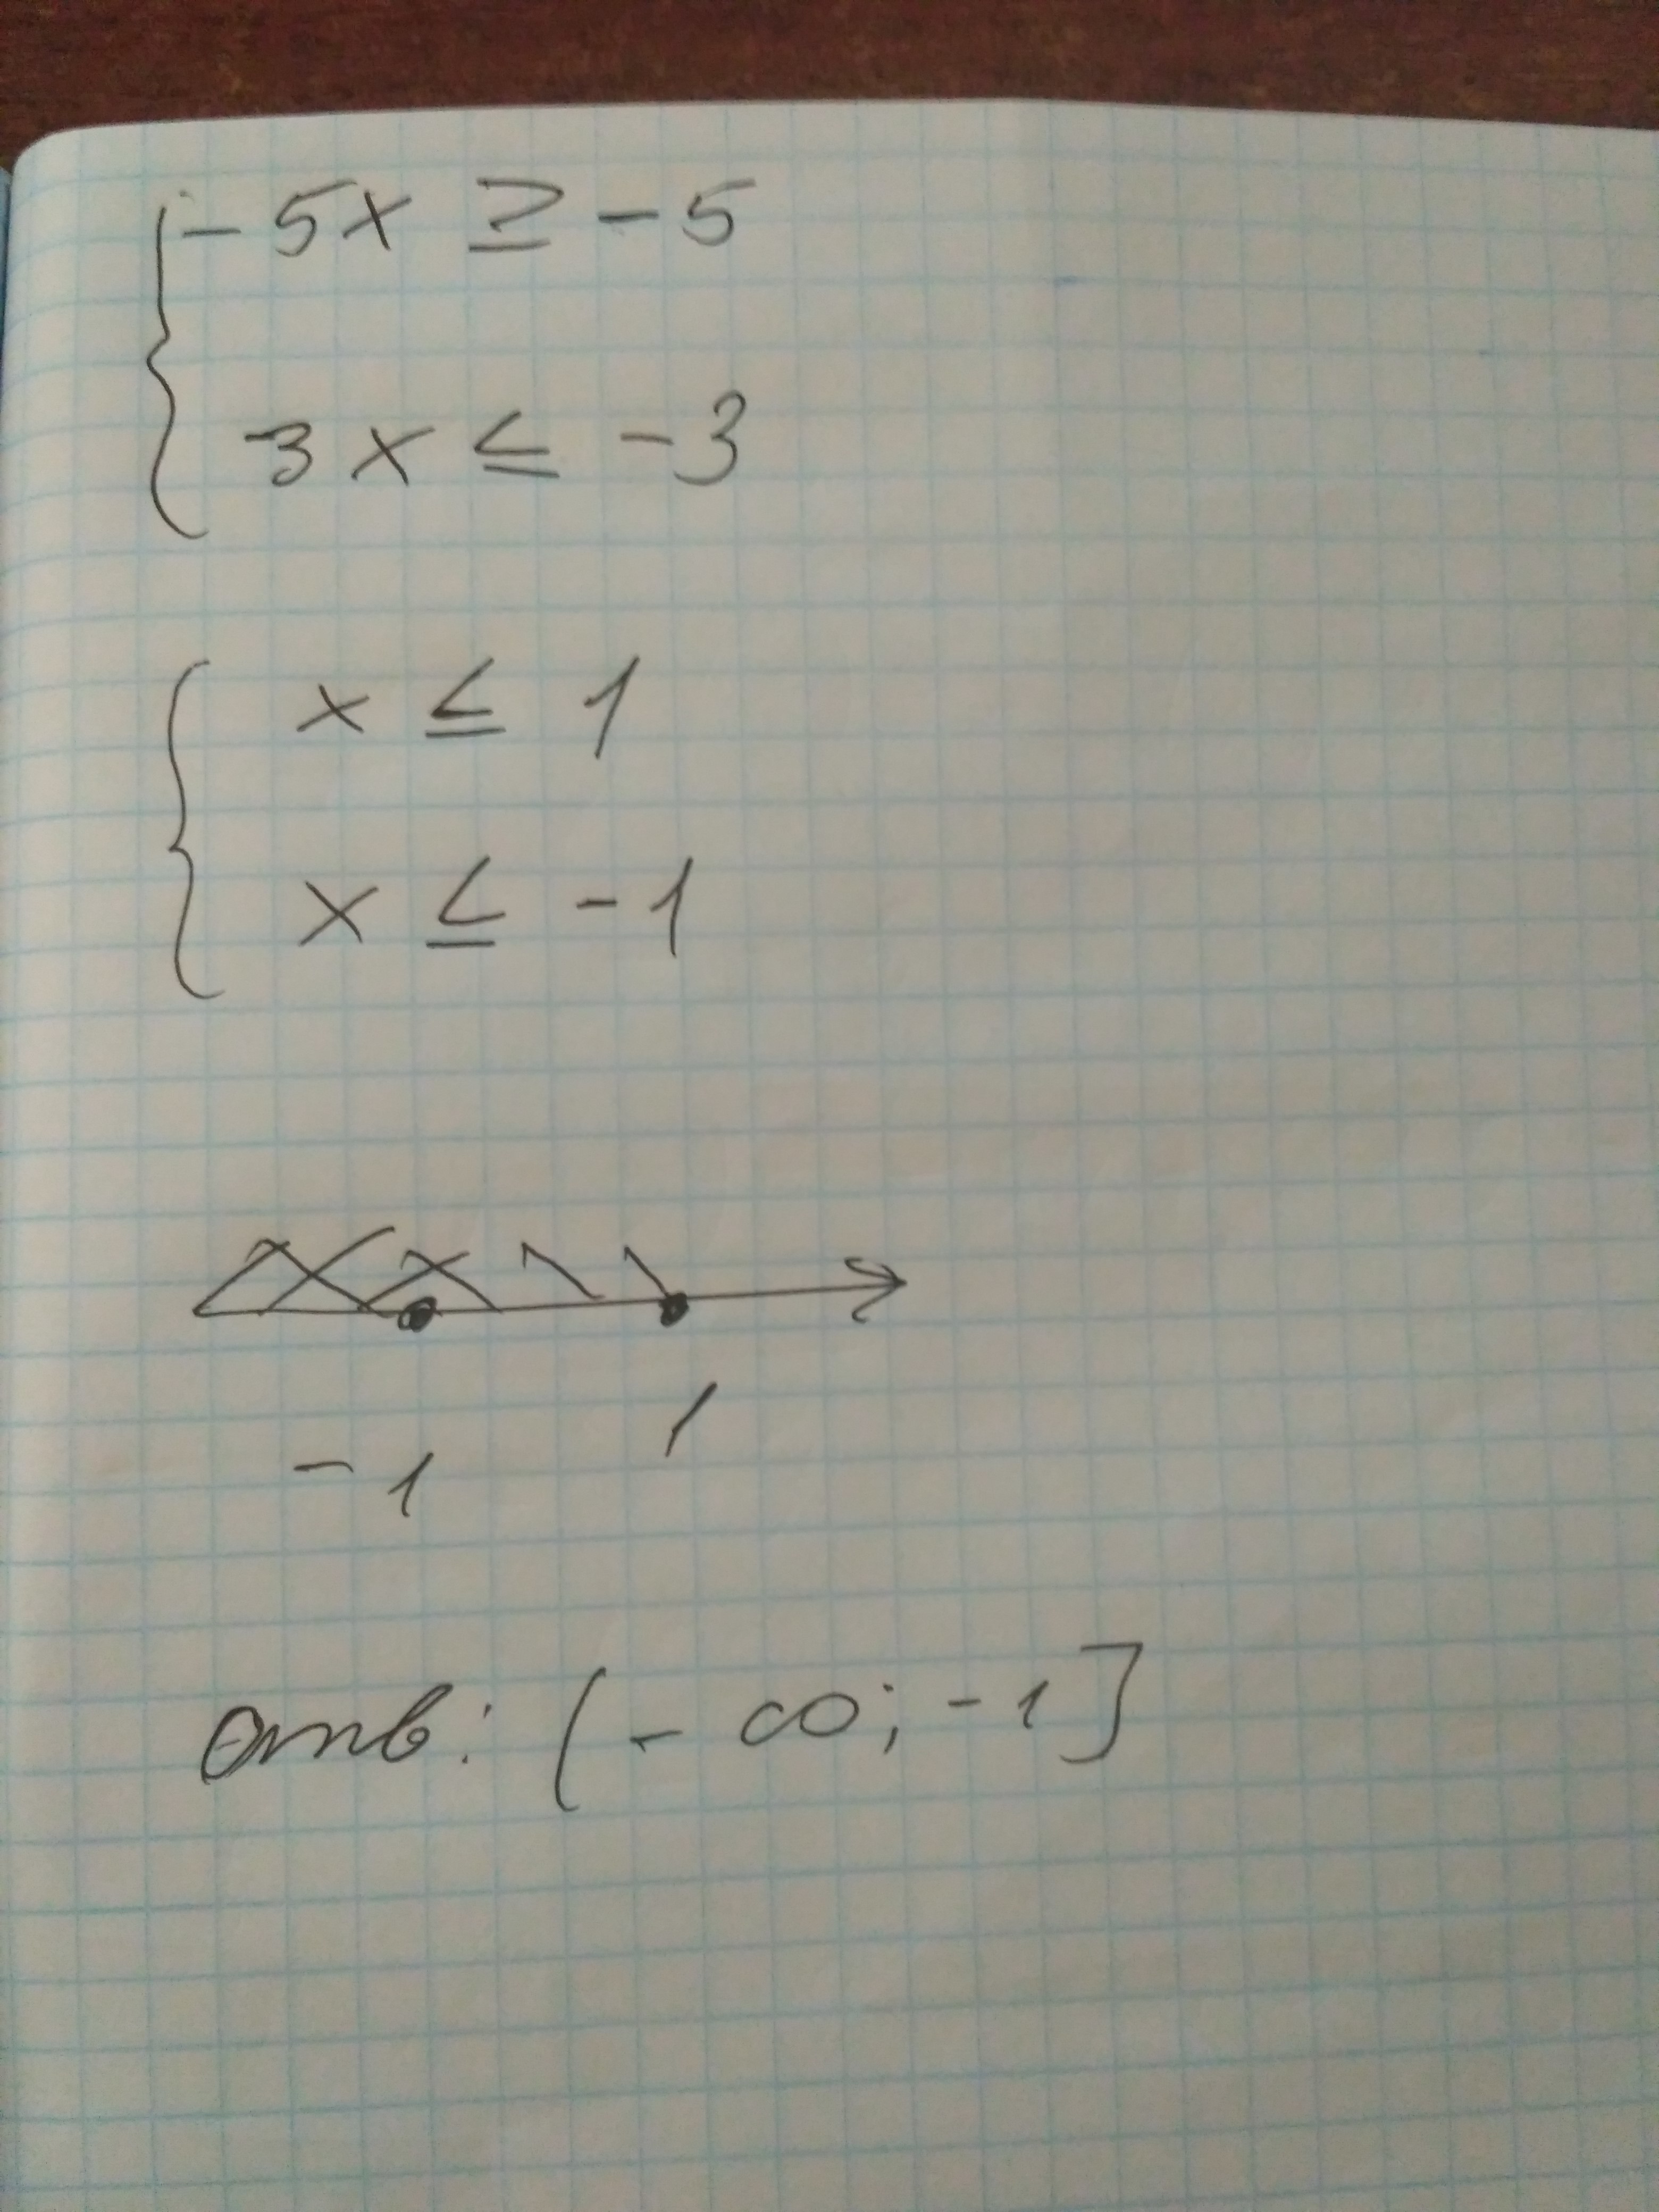 -5x ≥ -5
3x ≤ -3
x ≤ 1
x ≤ -1
-1 1
Ответ: (-∞; -1]